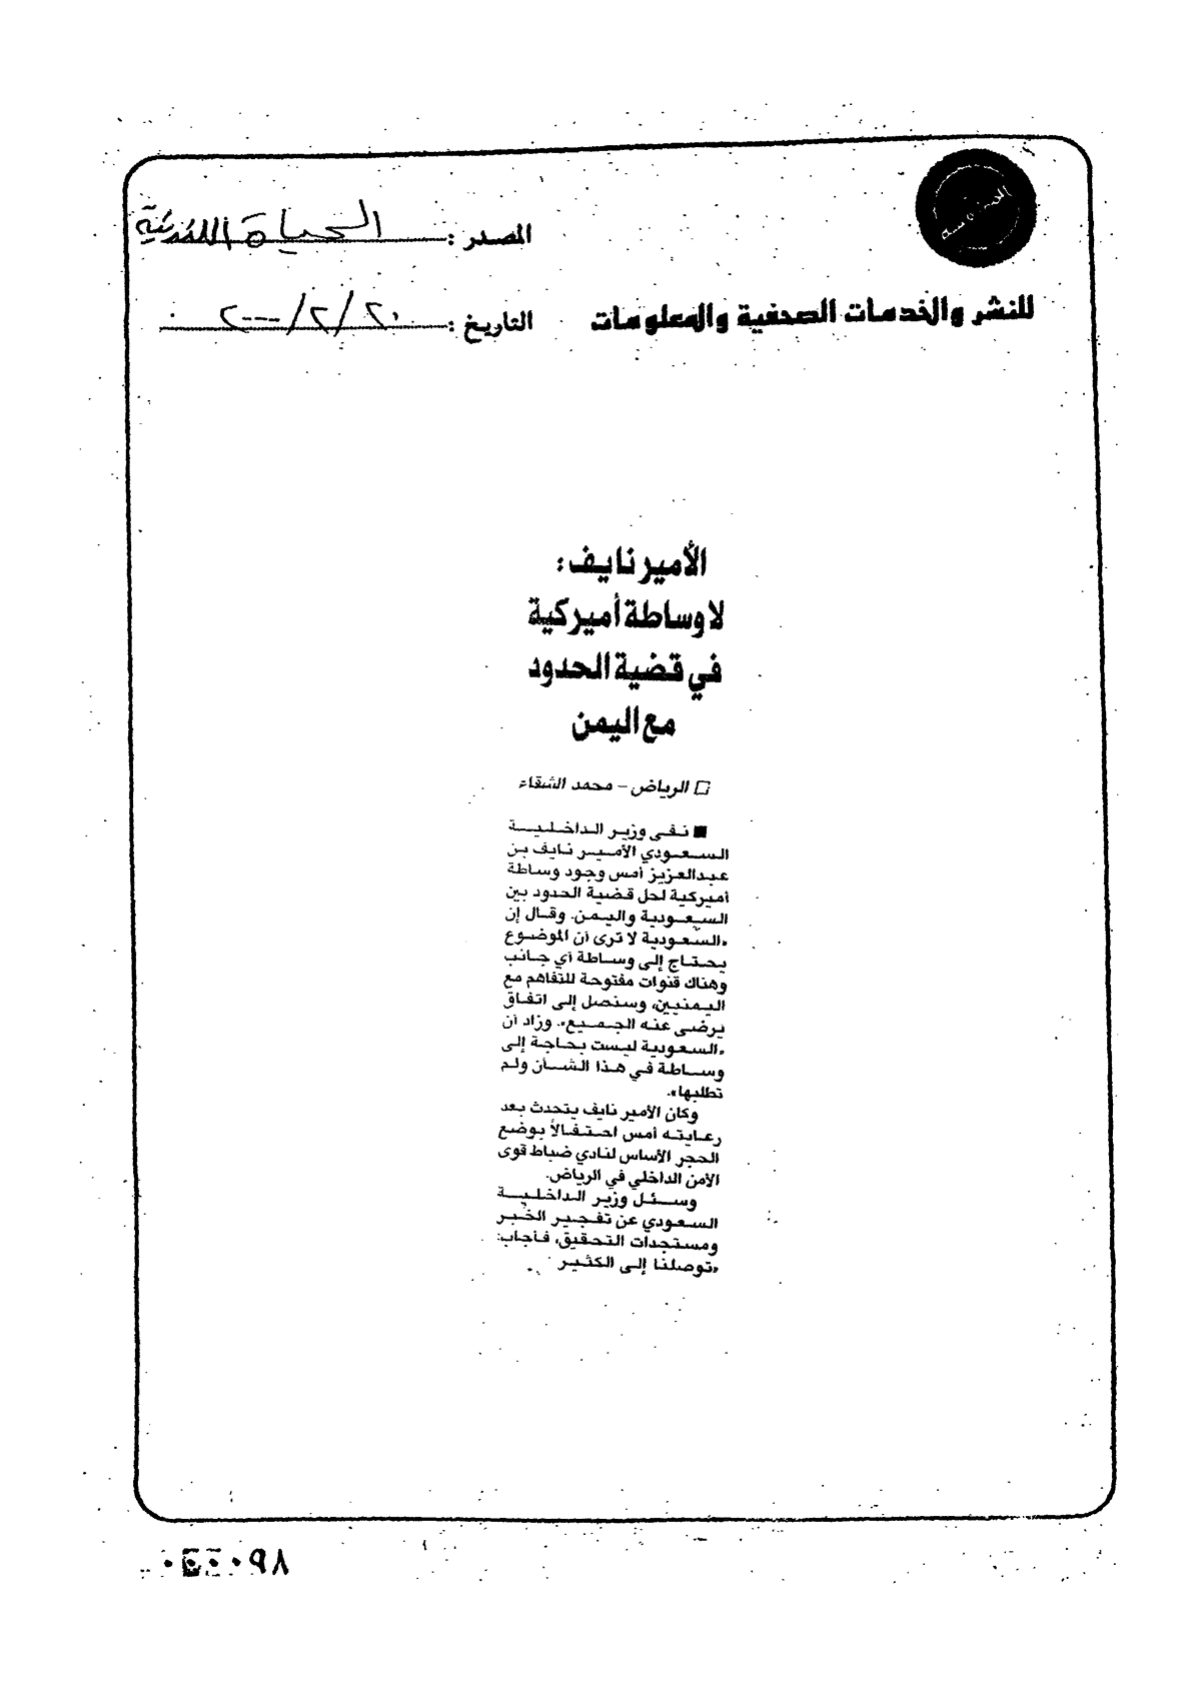 المصدر : الحياة اللندنية
للنشر والخدمات الصحفية والمعلومات
التاريخ : ٢٠/٢/٢٠٠٠
الأمير نايف :
لا وساطة أميركية
في قضية الحدود
مع اليمن
□ الرياض - محمد الشقاء
■ نفى وزير الداخلية
السعودي الأمير نايف بن
عبدالعزيز أمس وجود وساطة
أميركية لحل قضية الحدود بين
السعودية واليمن. وقال إن
«السعودية لا ترى أن الموضوع
يحتاج إلى وساطة أي جانب
وهناك قنوات مفتوحة للتفاهم مع
اليمنيين، وسنصل إلى اتفاق
يرضى عنه الجميع». وزاد أن
«السعودية ليست بحاجة إلى
وساطة في هذا الشأن ولم
تطلبها».
وكان الأمير نايف يتحدث بعد
رعايته أمس احتفالاً بوضع
الحجر الأساس لنادي ضباط قوى
الأمن الداخلي في الرياض.
وسئل وزير الداخلية
السعودي عن تفجير الخبر
ومستجدات التحقيق، فأجاب:
«توصلنا إلى الكثير